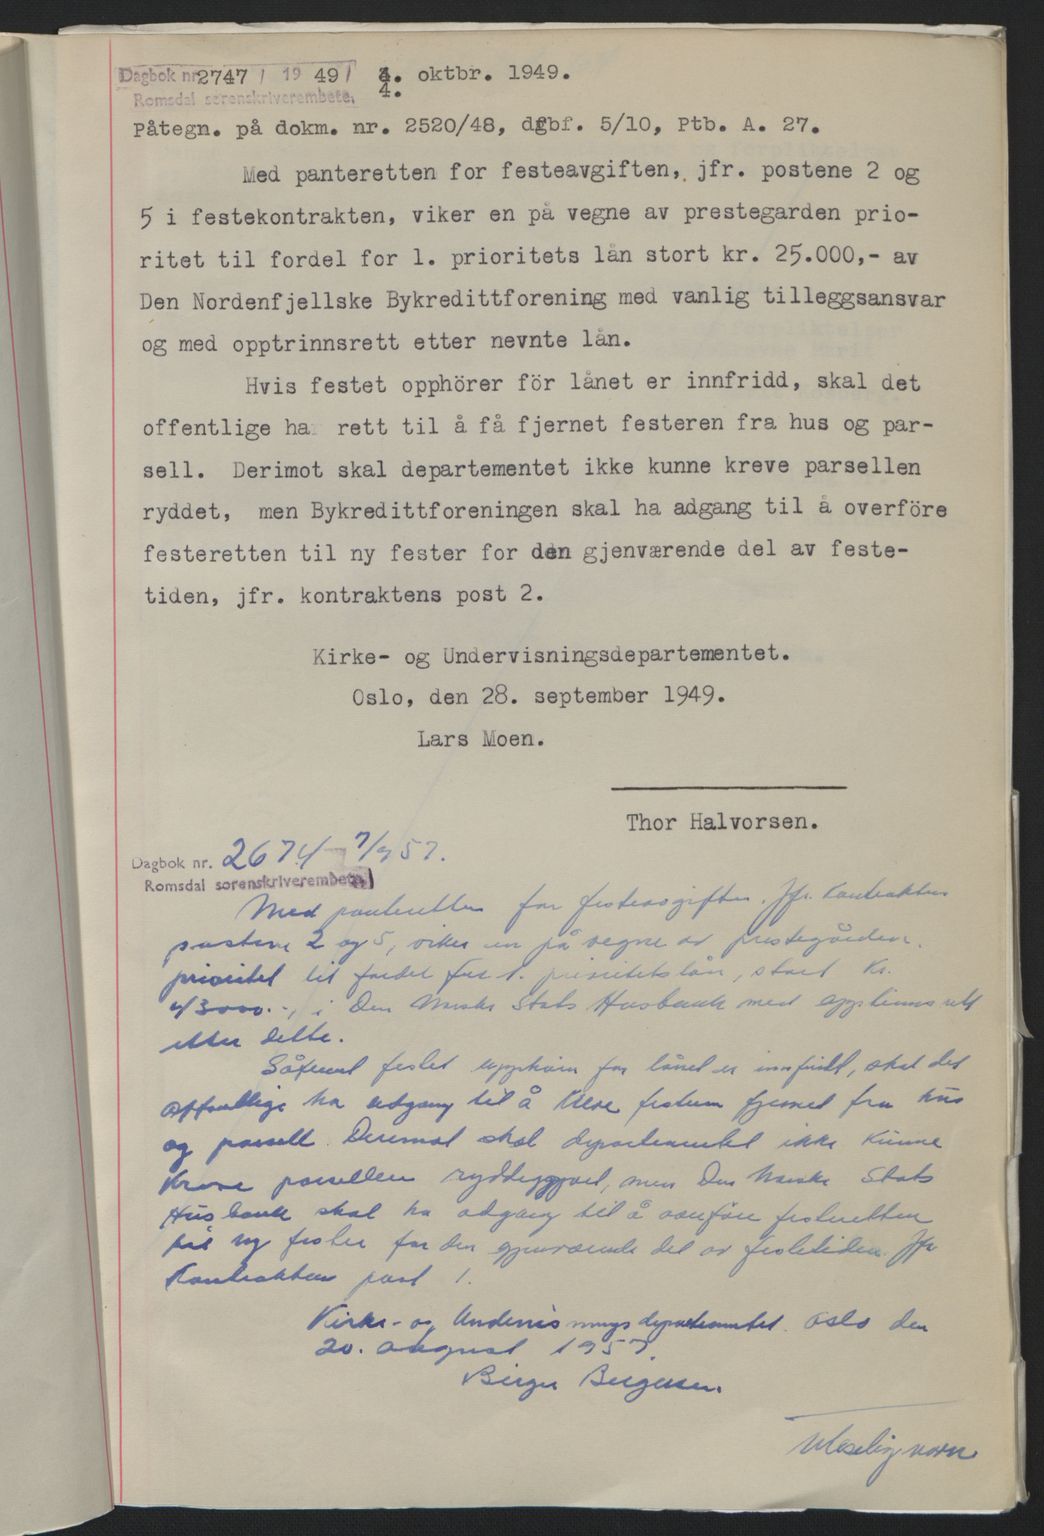 Dagbok nr. 2747 / 19 49 / 4. oktbr. 1949.
4.
Romsdal sorenskriverembete
Påtegn. på dokm. nr. 2520/48, dgbf. 5/10, Ptb. A. 27.
Med panteretten for festeavgiften, jfr. postene 2 og
5 i festekontrakten, viker en på vegne av prestegarden prio-
ritet til fordel for 1. prioritets lån stort kr. 25.000,- av
Den Nordenfjellske Bykredittforening med vanlig tilleggsansvar
og med opptrinnsrett etter nevnte lån.
Hvis festet opphörer för lånet er innfridd, skal det
offentlige ha rett til å få fjernet festeren fra hus og par-
sell. Derimot skal departementet ikke kunne kreve parsellen
ryddet, men Bykredittforeningen skal ha adgang til å overföre
festeretten til ny fester for den gjenværende del av feste-
tiden, jfr. kontraktens post 2.
Kirke- og Undervisningsdepartementet.
Oslo, den 28. september 1949.
Lars Moen.
Thor Halvorsen.
Dagbok nr. 2674 - 7/9 57.
Romsdal sorenskriverembete
Med panteretten for festeavgiften. Jfr. Kontraktens
postene 2 og 5, viker en på vegne av prestegården
prioritet til fordel for 1. prioritetslån, stort kr.
43000.-, i Den Norske Stats Husbank med opptrinnsrett
etter dette.
Såfremt festet opphörer før lånet er innfridd, skal det
offentlige ha adgang til å kreve festeren fjernet fra hus
og parsell. Derimot skal departementet ikke kunne
kreve parsellen ryddiggjort, men Den Norske Stats
Husbank skal ha adgang til å overføre festeretten
til ny fester for den gjenværende del av festetiden. Jfr
Kontraktens post 1.
Kirke- og Undervisningsdepartementet. Oslo den
20. august 1957.
Birger Bergersen.